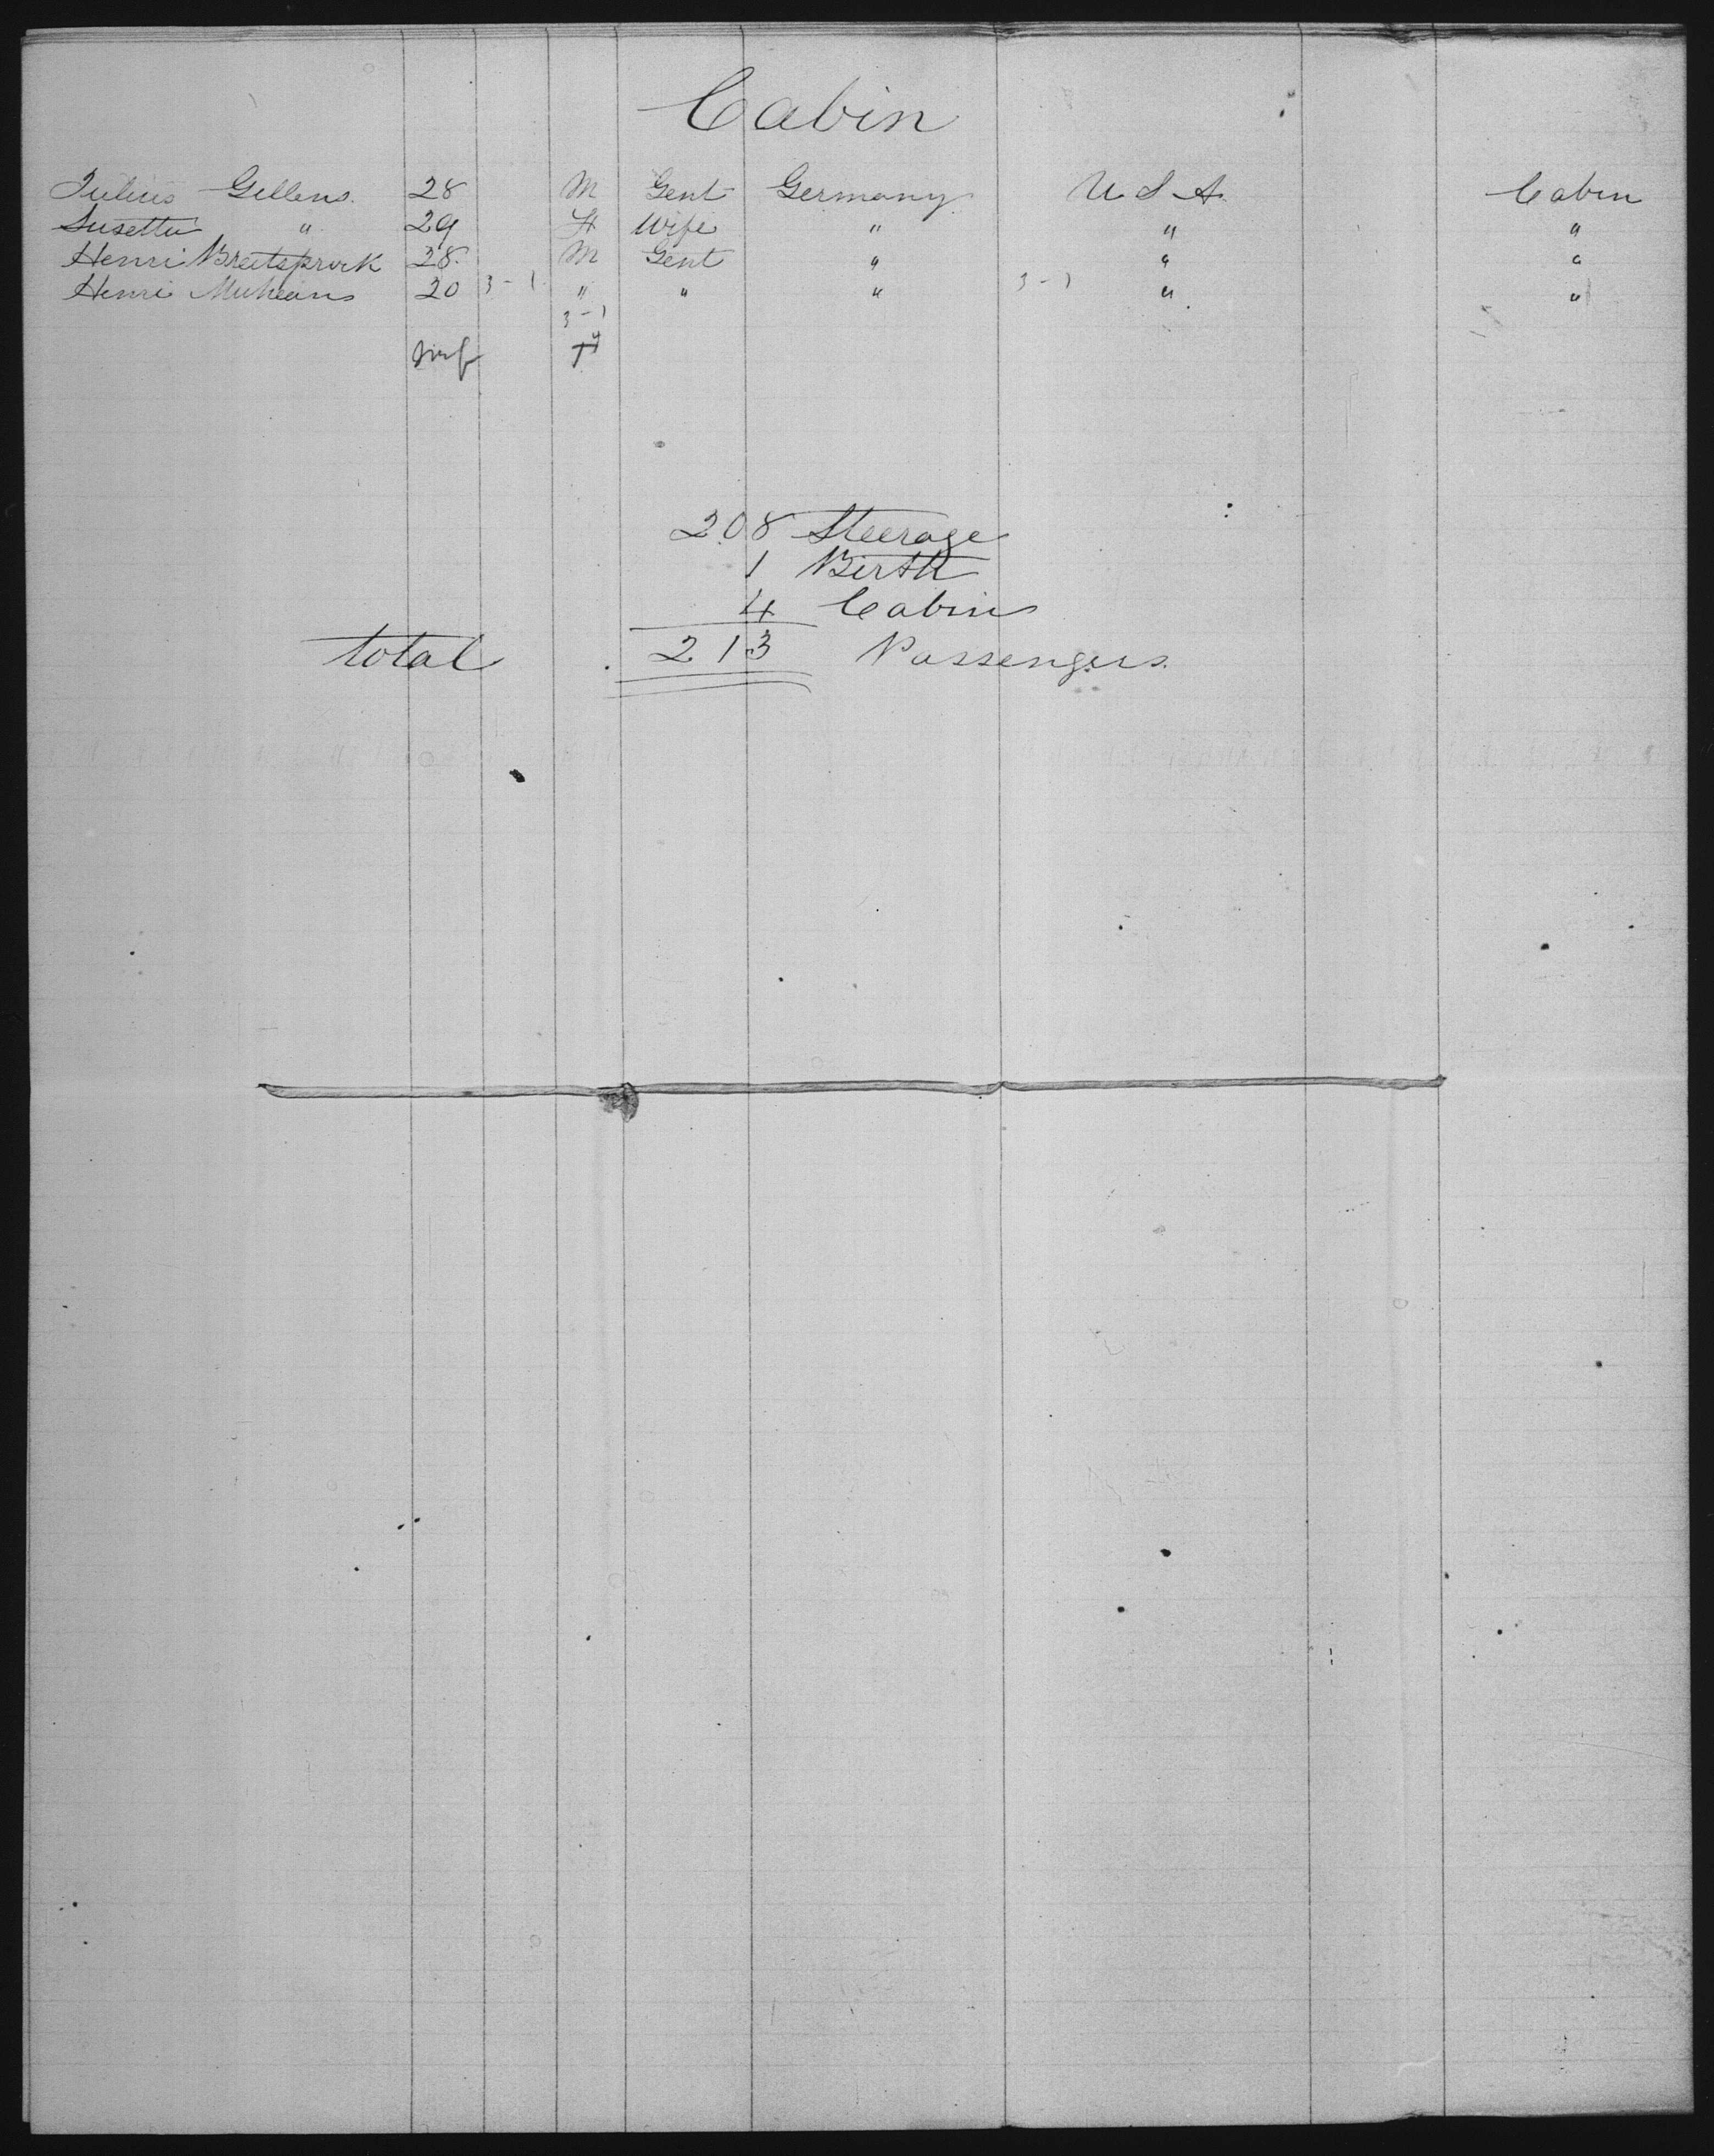 Cabin
Julius Gellens. 28 M Gent Germany U S A. Cabin
Susette " 29 F Wife " " "
Henri Breitsprock 28. M Gent " " "
Henri 20 3-1 " " " 3-1 " "
3-1
4
208 Steerage
1 Birth
4 Cabin
total 213 Passengers.